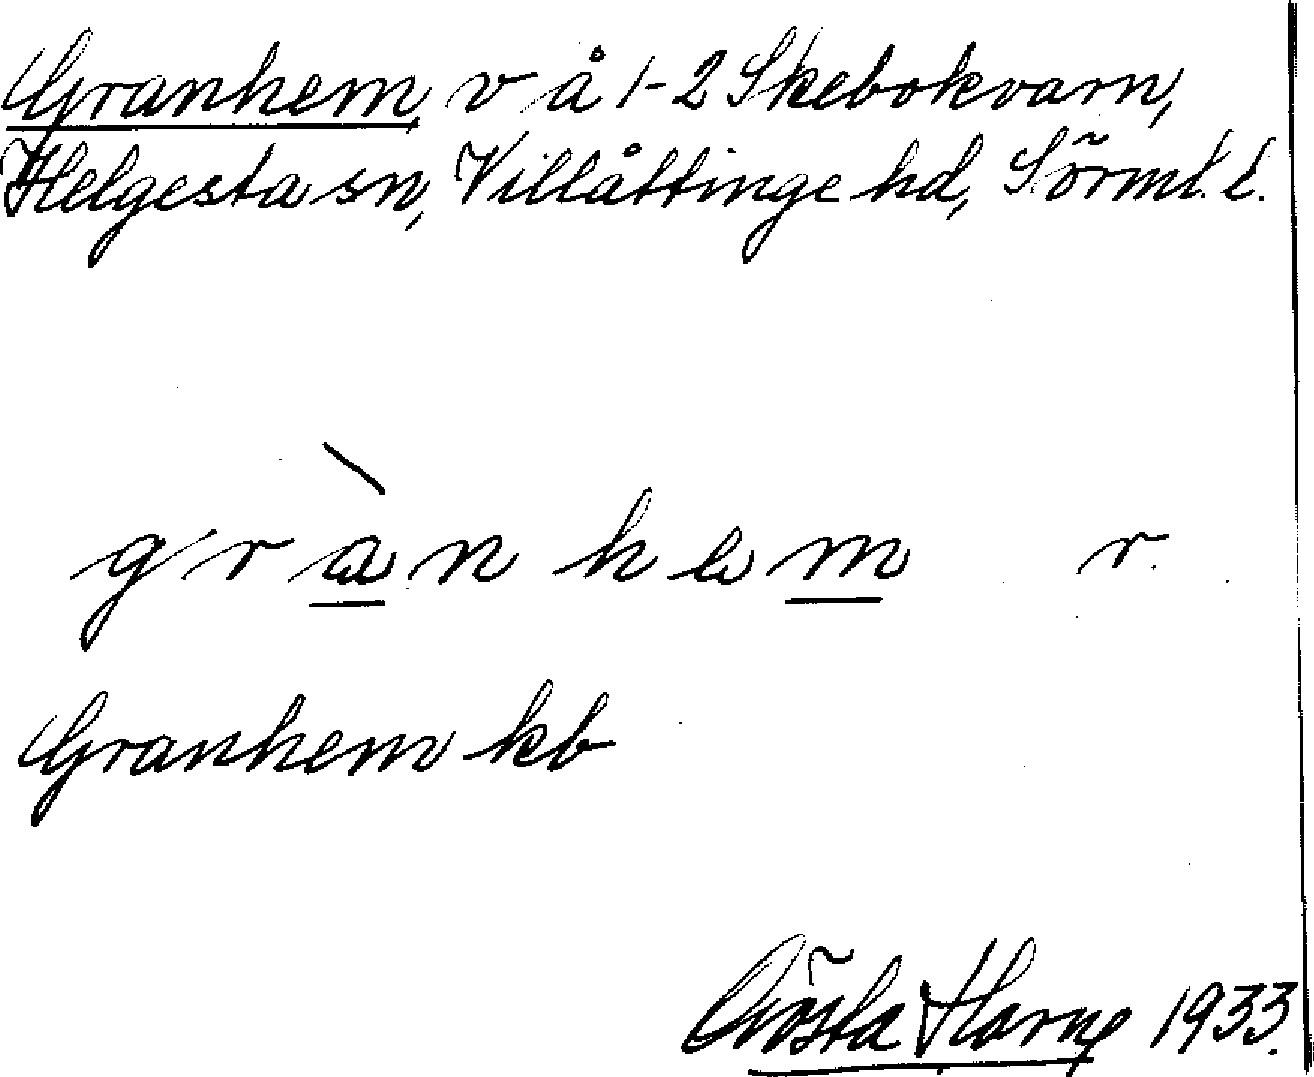 Granhem v å 1-2 Skebokvarn,
Helgesta sn, Villåttinge hd, Sörml. l.
grànhem r.
Granhem kb
Gösta Harne 1933.